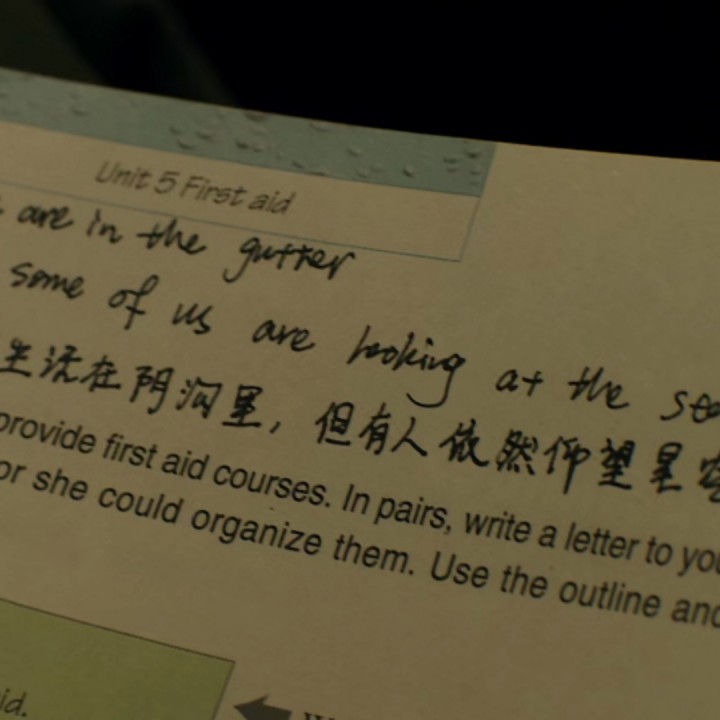 Unit 5 First aid
are in the gutter
some of us are looking at the
生活在阴沟里，但有人依然仰望星空
provide first aid courses. In pairs, write a letter to
or she could organize them. Use the outline and